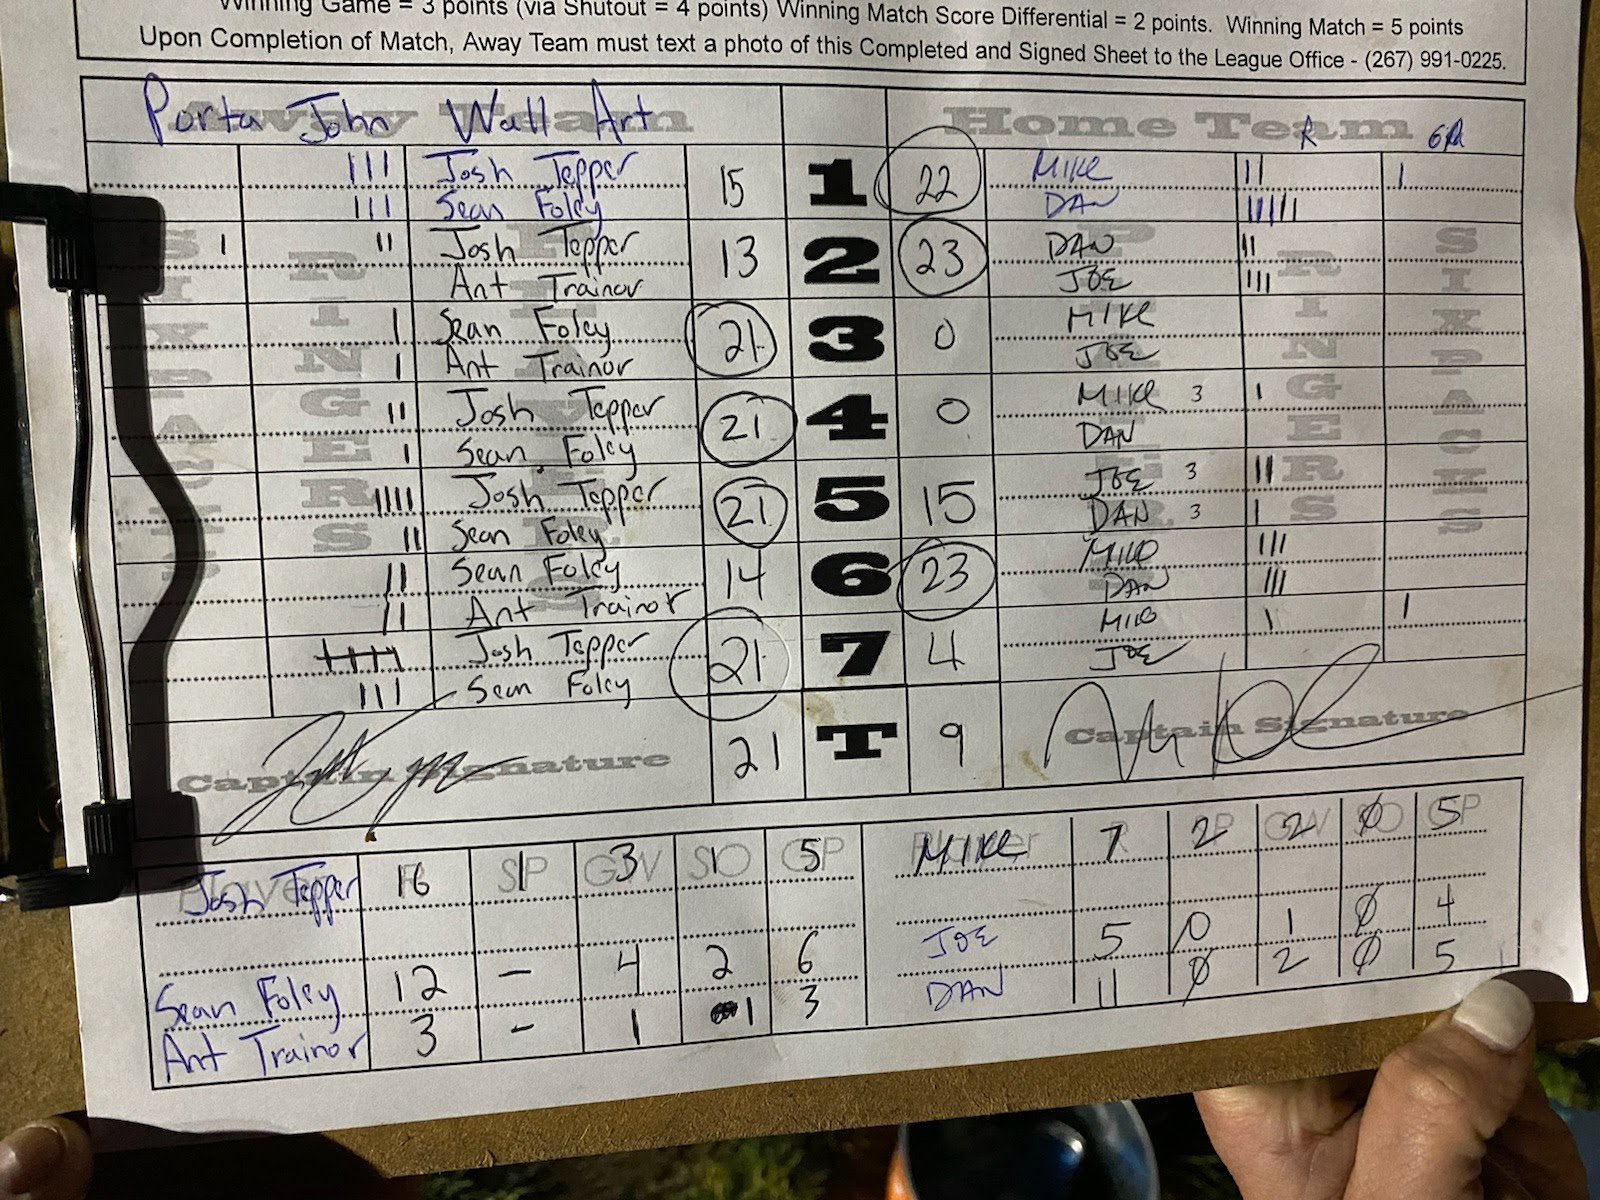 Winning Game = 3 points (via Shutout = 4 points) Winning Match Score Differential = 2 points. Winning Match = 5 points
Upon Completion of Match, Away Team must text a photo of this Completed and Signed Sheet to the League Office - (267) 991-0225.
Away Team Home Team
Porta John Wall Art R 6PK
III Josh Tepper 15 1 22 MIKE II I
III Sean Foley DAN IIIIII
I II Josh Tepper 13 2 23 DAN II
Ant Trainor JOE III
I Sean Foley 21 3 0 MIKE
I Ant Trainor JOE
II Josh Tepper 21 4 0 MIKE 3 I
I Sean Foley DAN
IIII Josh Tepper 21 5 15 JOE 3 II
II Sean Foley DAN 3 I
II Sean Foley 14 6 23 MIKE III
II Ant Trainor DAN III
IIIII Josh Tepper 21 7 4 MIKE I I
III Sean Foley JOE
SIXPACKS RINGERS PLAYERS PLAYERS RINGERS SIXPACKS
21 T 9
Captain Signature Captain Signature
Player R SP GW SO GP Player R SP GW SO GP
Josh Tepper 16 1 3 5 MIKE 7 2 2 0 5
JOE 5 0 1 0 4
Sean Foley 12 - 4 2 6 DAN 11 0 2 0 5
Ant Trainor 3 - 1 1 3